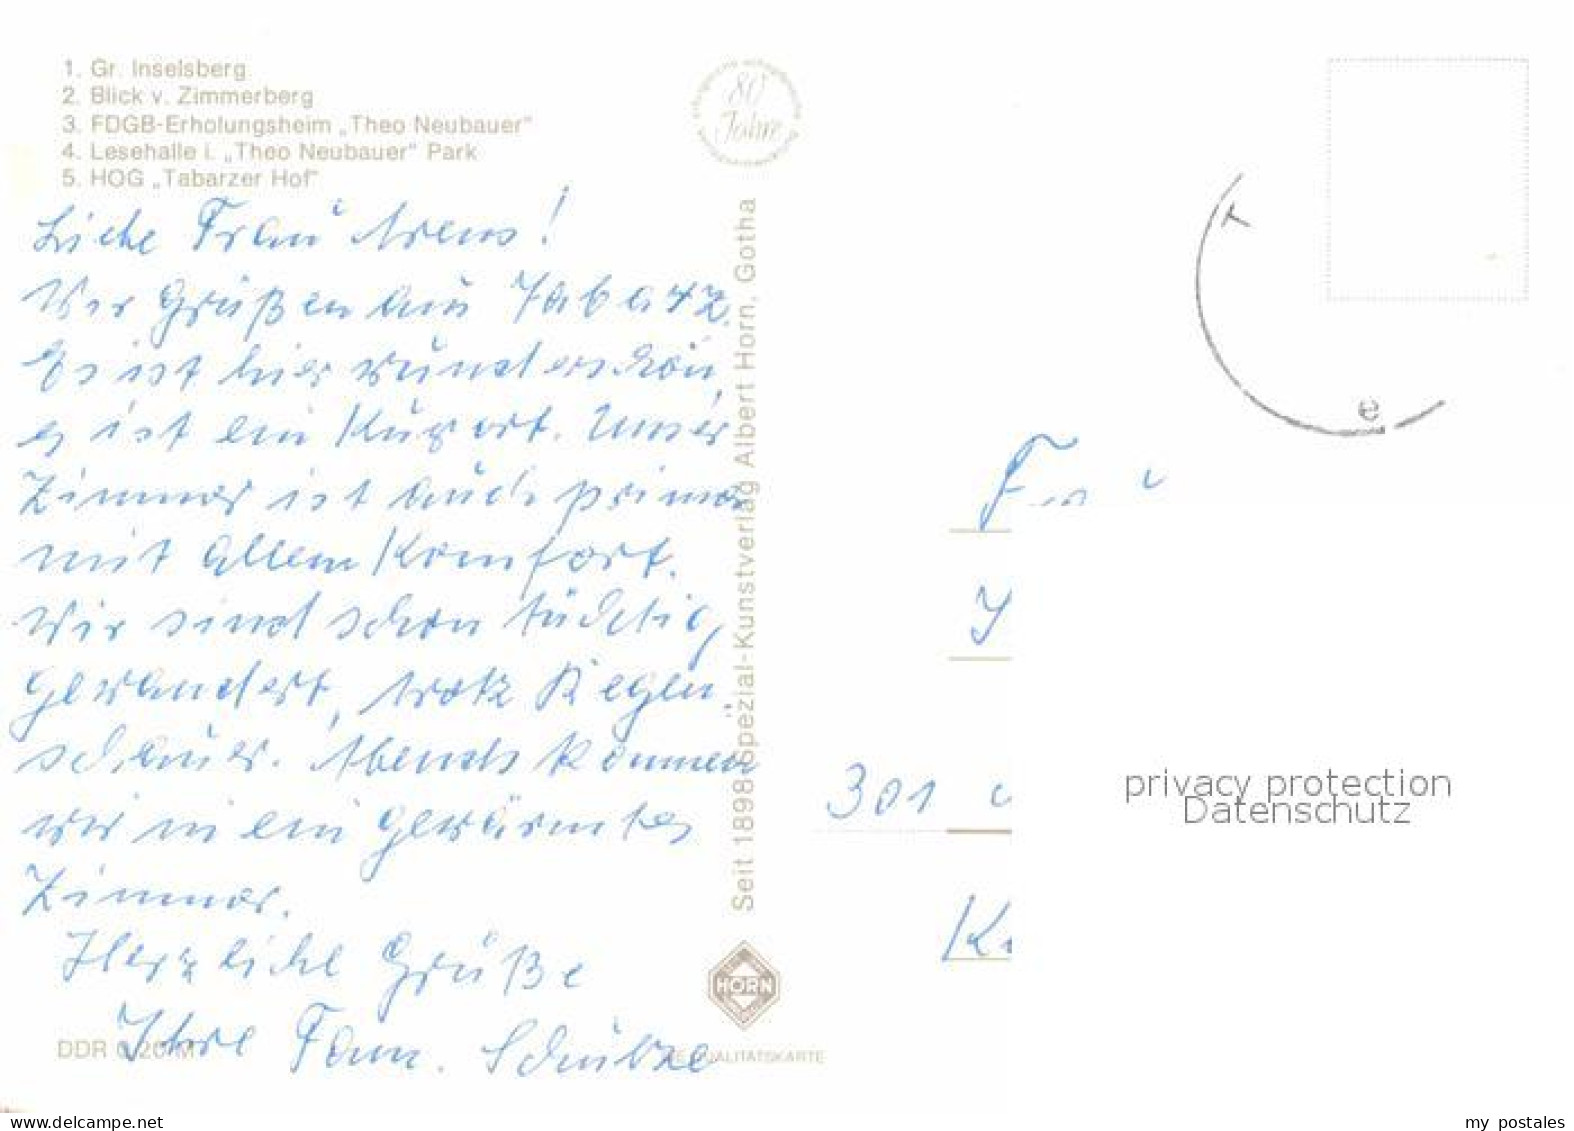 1. Gr. Inselsberg
2. Blick v. Zimmerberg
3. FDGB-Erholungsheim „Theo Neubauer“
4. Lesehalle i. „Theo Neubauer“ Park
5. HOG „Tabarzer Hof“
80
Jahre
Liebe Frau Arens!
Wir Grüßen aus Tabarz.
Es ist hier wunderschön,
es ist ein Kurort. Unser
Zimmer ist auch prima
mit allem Komfort.
Wir sind schon tüchtig
gewandert, trotz Regen-
schauer. Abends kommen
wir in ein gewärmtes
Zimmer.
Herzliche Grüße
Ihre Fam. Schulze
DDR 0,20 M
Seit 1898 Spezial-Kunstverlag Albert Horn, Gotha
HORN
QUALITÄTSKARTE
T
e
301
privacy protection
Datenschutz
www.delcampe.net
my_postales